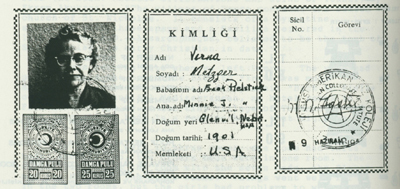 20 KURUŞ 20
DAMGA PULU
25 KURUŞ 25
DAMGA PULU
KİMLİĞİ
Adı Verna
Soyadı: Metzger
Babasının adı:
Ana adı: Minnie J. "
Doğum yeri: Glenvil, Nebr.
Doğum tarihi: 1901
Memleketi: U.S.A.
Sicil No.
Görevi
9 HAZİRAN